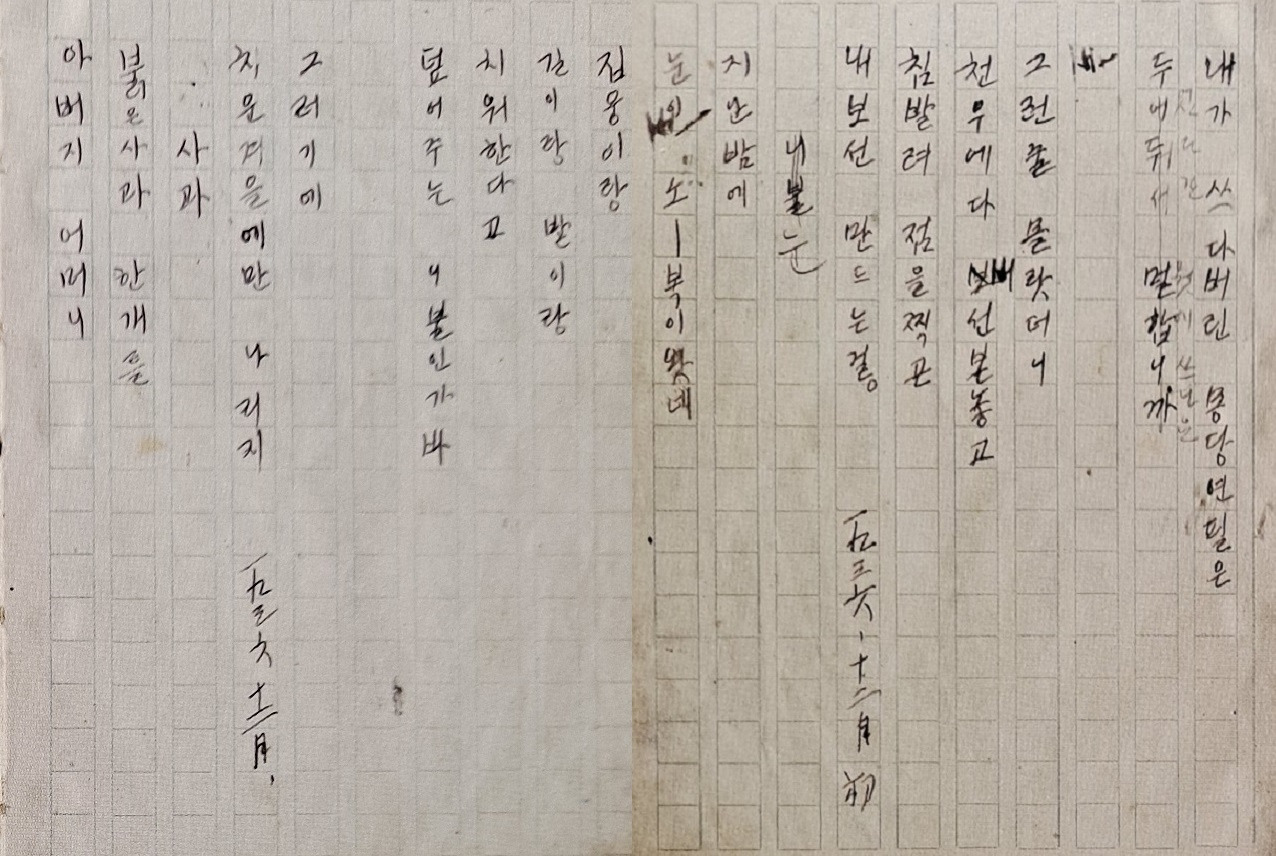 내가 쓰다버린 몽당연필은
두에둬서 멀합니까
그런줄 몰랏더니
천우에다 버선본놓고
침발려 점을찍곤
내보선 만드는걸。 一九三六·十二月初
니불
눈
지난밤에
눈이 소ー복이왓네
집웅이랑
길이랑 밭이랑
치워한다고
덮어주는 니불인가바
그러기에
치운겨을에만 나리지 一九三六十二月,
사과
붉은사과 한개를
아버지 어머니